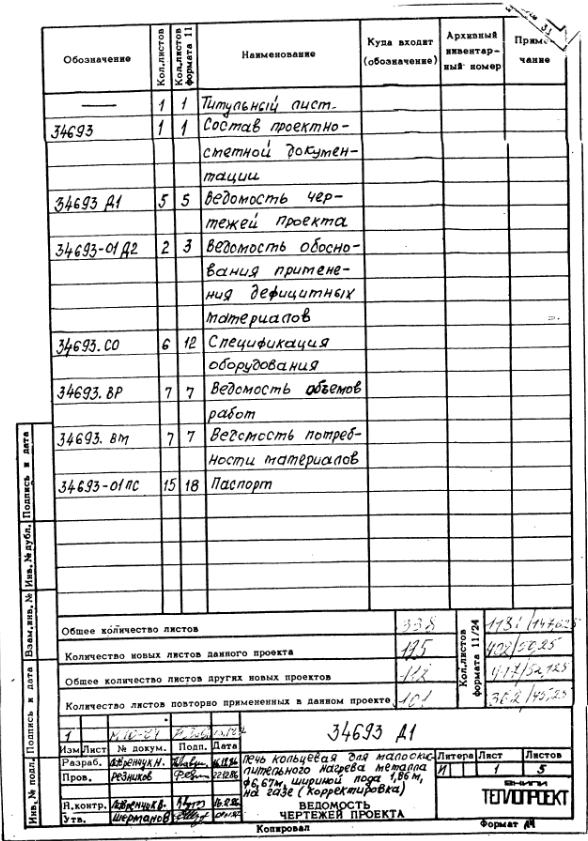 Обозначение Кол.листов Кол.листов формата 11 Наименование Куда входит (обозначение) Архивный инвентарный номер Примечание
— 1 1 Титульный лист.
34693 1 1 Состав проектно-
сметной докумен-
тации
34693 Д1 5 5 Ведомость чер-
тежей проекта
34693-01 Д2 2 3 Ведомость обосно-
вания примене-
ния дефицитных
материалов
34693.СО 6 12 Спецификация
оборудования
34693.ВР 7 7 Ведомость объемов
работ
34693.ВМ 7 7 Ведомость потреб-
ности материалов
34693-01ПС 15 18 Паспорт
Общее количество листов 338
Количество новых листов данного проекта 125
Общее количество листов других новых проектов 112
Количество листов повторно примененных в данном проекте 101
Кол.листов формата 11/24
402/50,25
417/52,125
Инв.№ подл. Подпись и дата Взам.инв.№ Инв.№ дубл. Подпись и дата
34693 Д1
1
Изм Лист № докум. Подп. Дата
Разраб. Лавренчук Н.
Пров. Резников
Н.контр.
Утв. Шерманов
Печь кольцевая для малоокис-
лительного нагрева металла
ф6,67м, шириной пода 1,86м,
на газе (корректировка)
ВЕДОМОСТЬ
ЧЕРТЕЖЕЙ ПРОЕКТА
Литера Лист Листов
И 1 5
ВНИПИ
ТЕПЛОПРОЕКТ
Копировал Формат А4